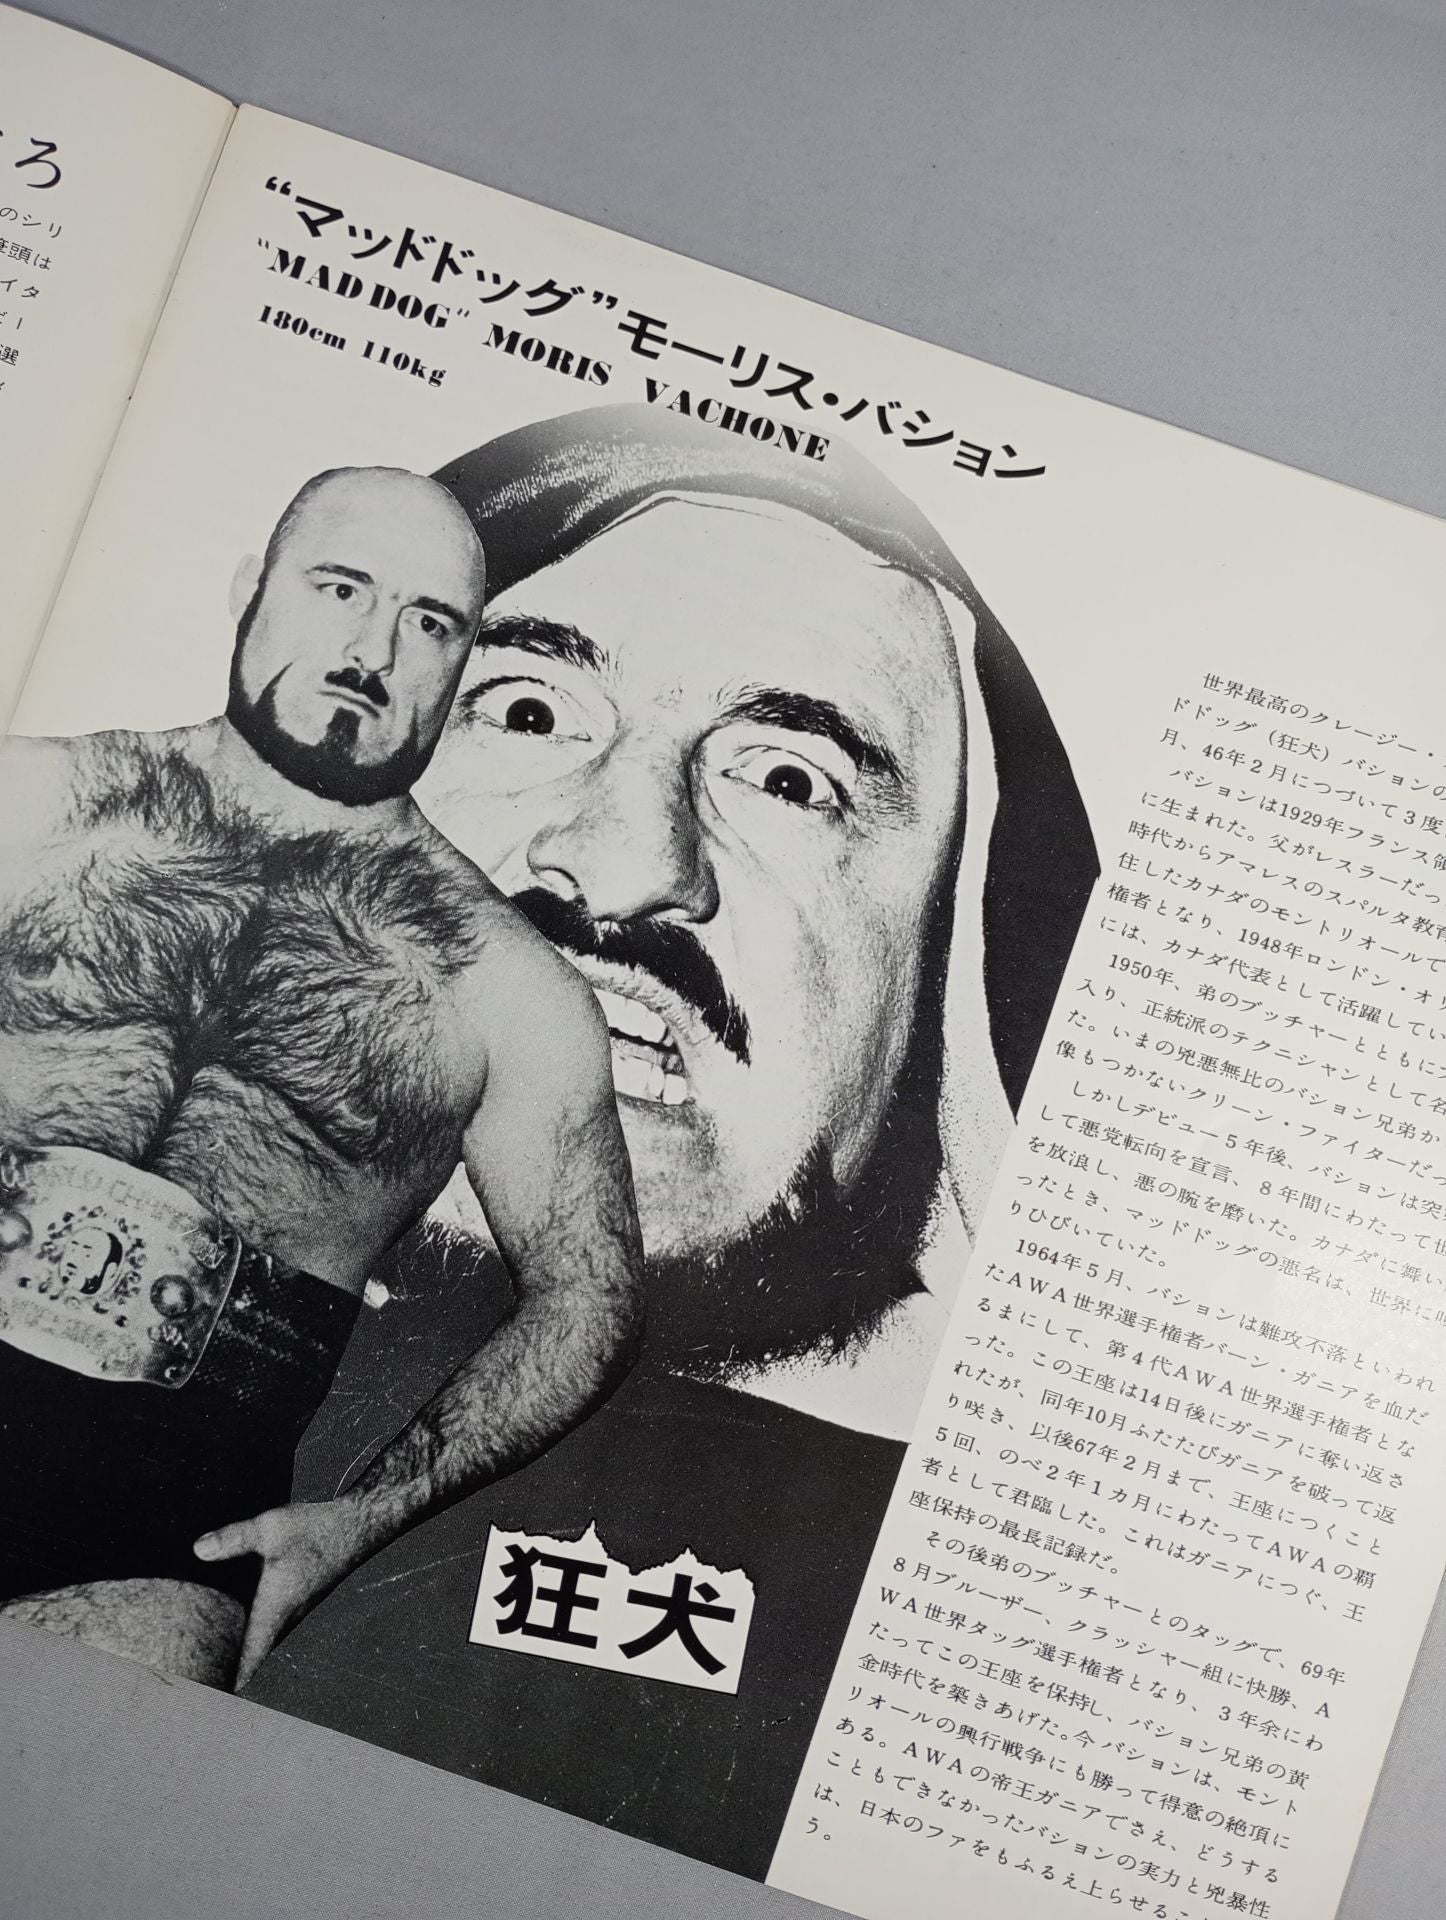 ろ
のシリ
頭は
イタ
ビー
選
“マッドドッグ”モーリス・バション
"MAD DOG" MORIS VACHONE
180cm 110kg
狂犬
世界最高のクレージー・
ドドッグ（狂犬）バションの
月、46年２月につづいて３度
バションは1929年フランス領
に生まれた。父がレスラーだっ
時代からアマレスのスパルタ教育
住したカナダのモントリオールで
権者となり、1948年ロンドン・オリ
には、カナダ代表として活躍してい
1950年、弟のブッチャーとともにプ
入り、正統派のテクニシャンとして名
た。いまの兇悪無比のバション兄弟か
像もつかないクリーン・ファイターだっ
しかしデビュー５年後、バションは突
して悪党転向を宣言、８年間にわたって世
を放浪し、悪の腕を磨いた。カナダに舞い
ったとき、マッドドッグの悪名は、世界に
りひびいていた。
1964年５月、バションは難攻不落といわれ
たＡＷＡ世界選手権者バーン・ガニアを血だ
るまにして、第４代ＡＷＡ世界選手権者とな
った。この王座は14日後にガニアに奪い返さ
れたが、同年10月ふたたびガニアを破って返
り咲き、以後67年２月まで、王座につくこと
５回、のべ２年１カ月にわたってＡＷＡの覇
者として君臨した。これはガニアにつぐ、王
座保持の最長記録だ。
その後弟のブッチャーとのタッグで、69年
８月ブルーザー、クラッシャー組に快勝、Ａ
ＷＡ世界タッグ選手権者となり、３年余にわ
たってこの王座を保持し、バション兄弟の黄
金時代を築きあげた。今バションは、モント
リオールの興行戦争にも勝って得意の絶頂に
ある。ＡＷＡの帝王ガニアでさえ、どうする
こともできなかったバションの実力と兇暴性
は、日本のファをもふるえ上らせるこ
う。